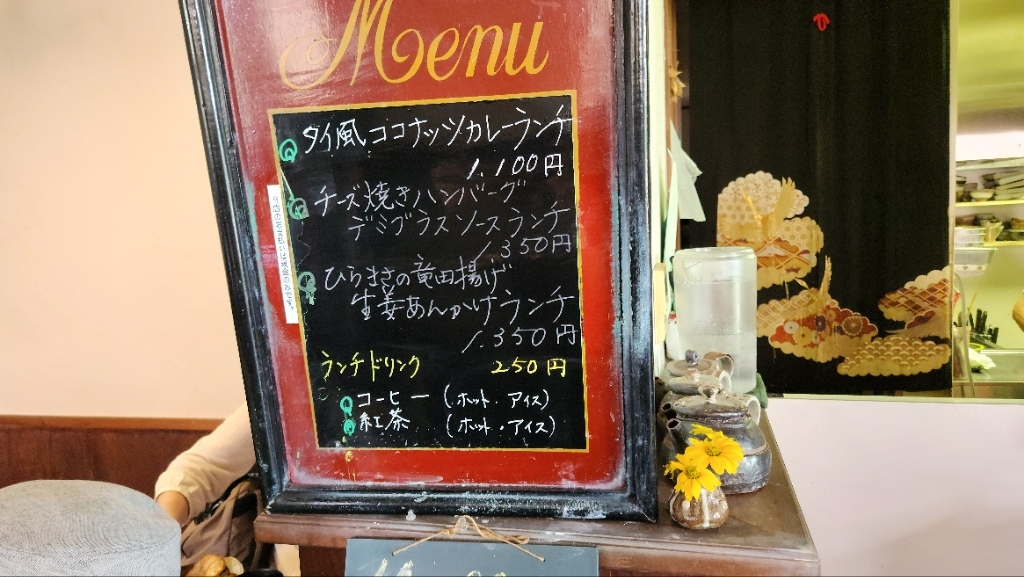 Menu
タイ風ココナッツカレーランチ
1.100円
チーズ焼きハンバーグ
デミグラスソースランチ
1.350円
ひらまさの竜田揚げ
生姜あんかけランチ
1.350円
ランチドリンク 250円
コーヒー (ホット・アイス)
紅茶 (ホット・アイス)